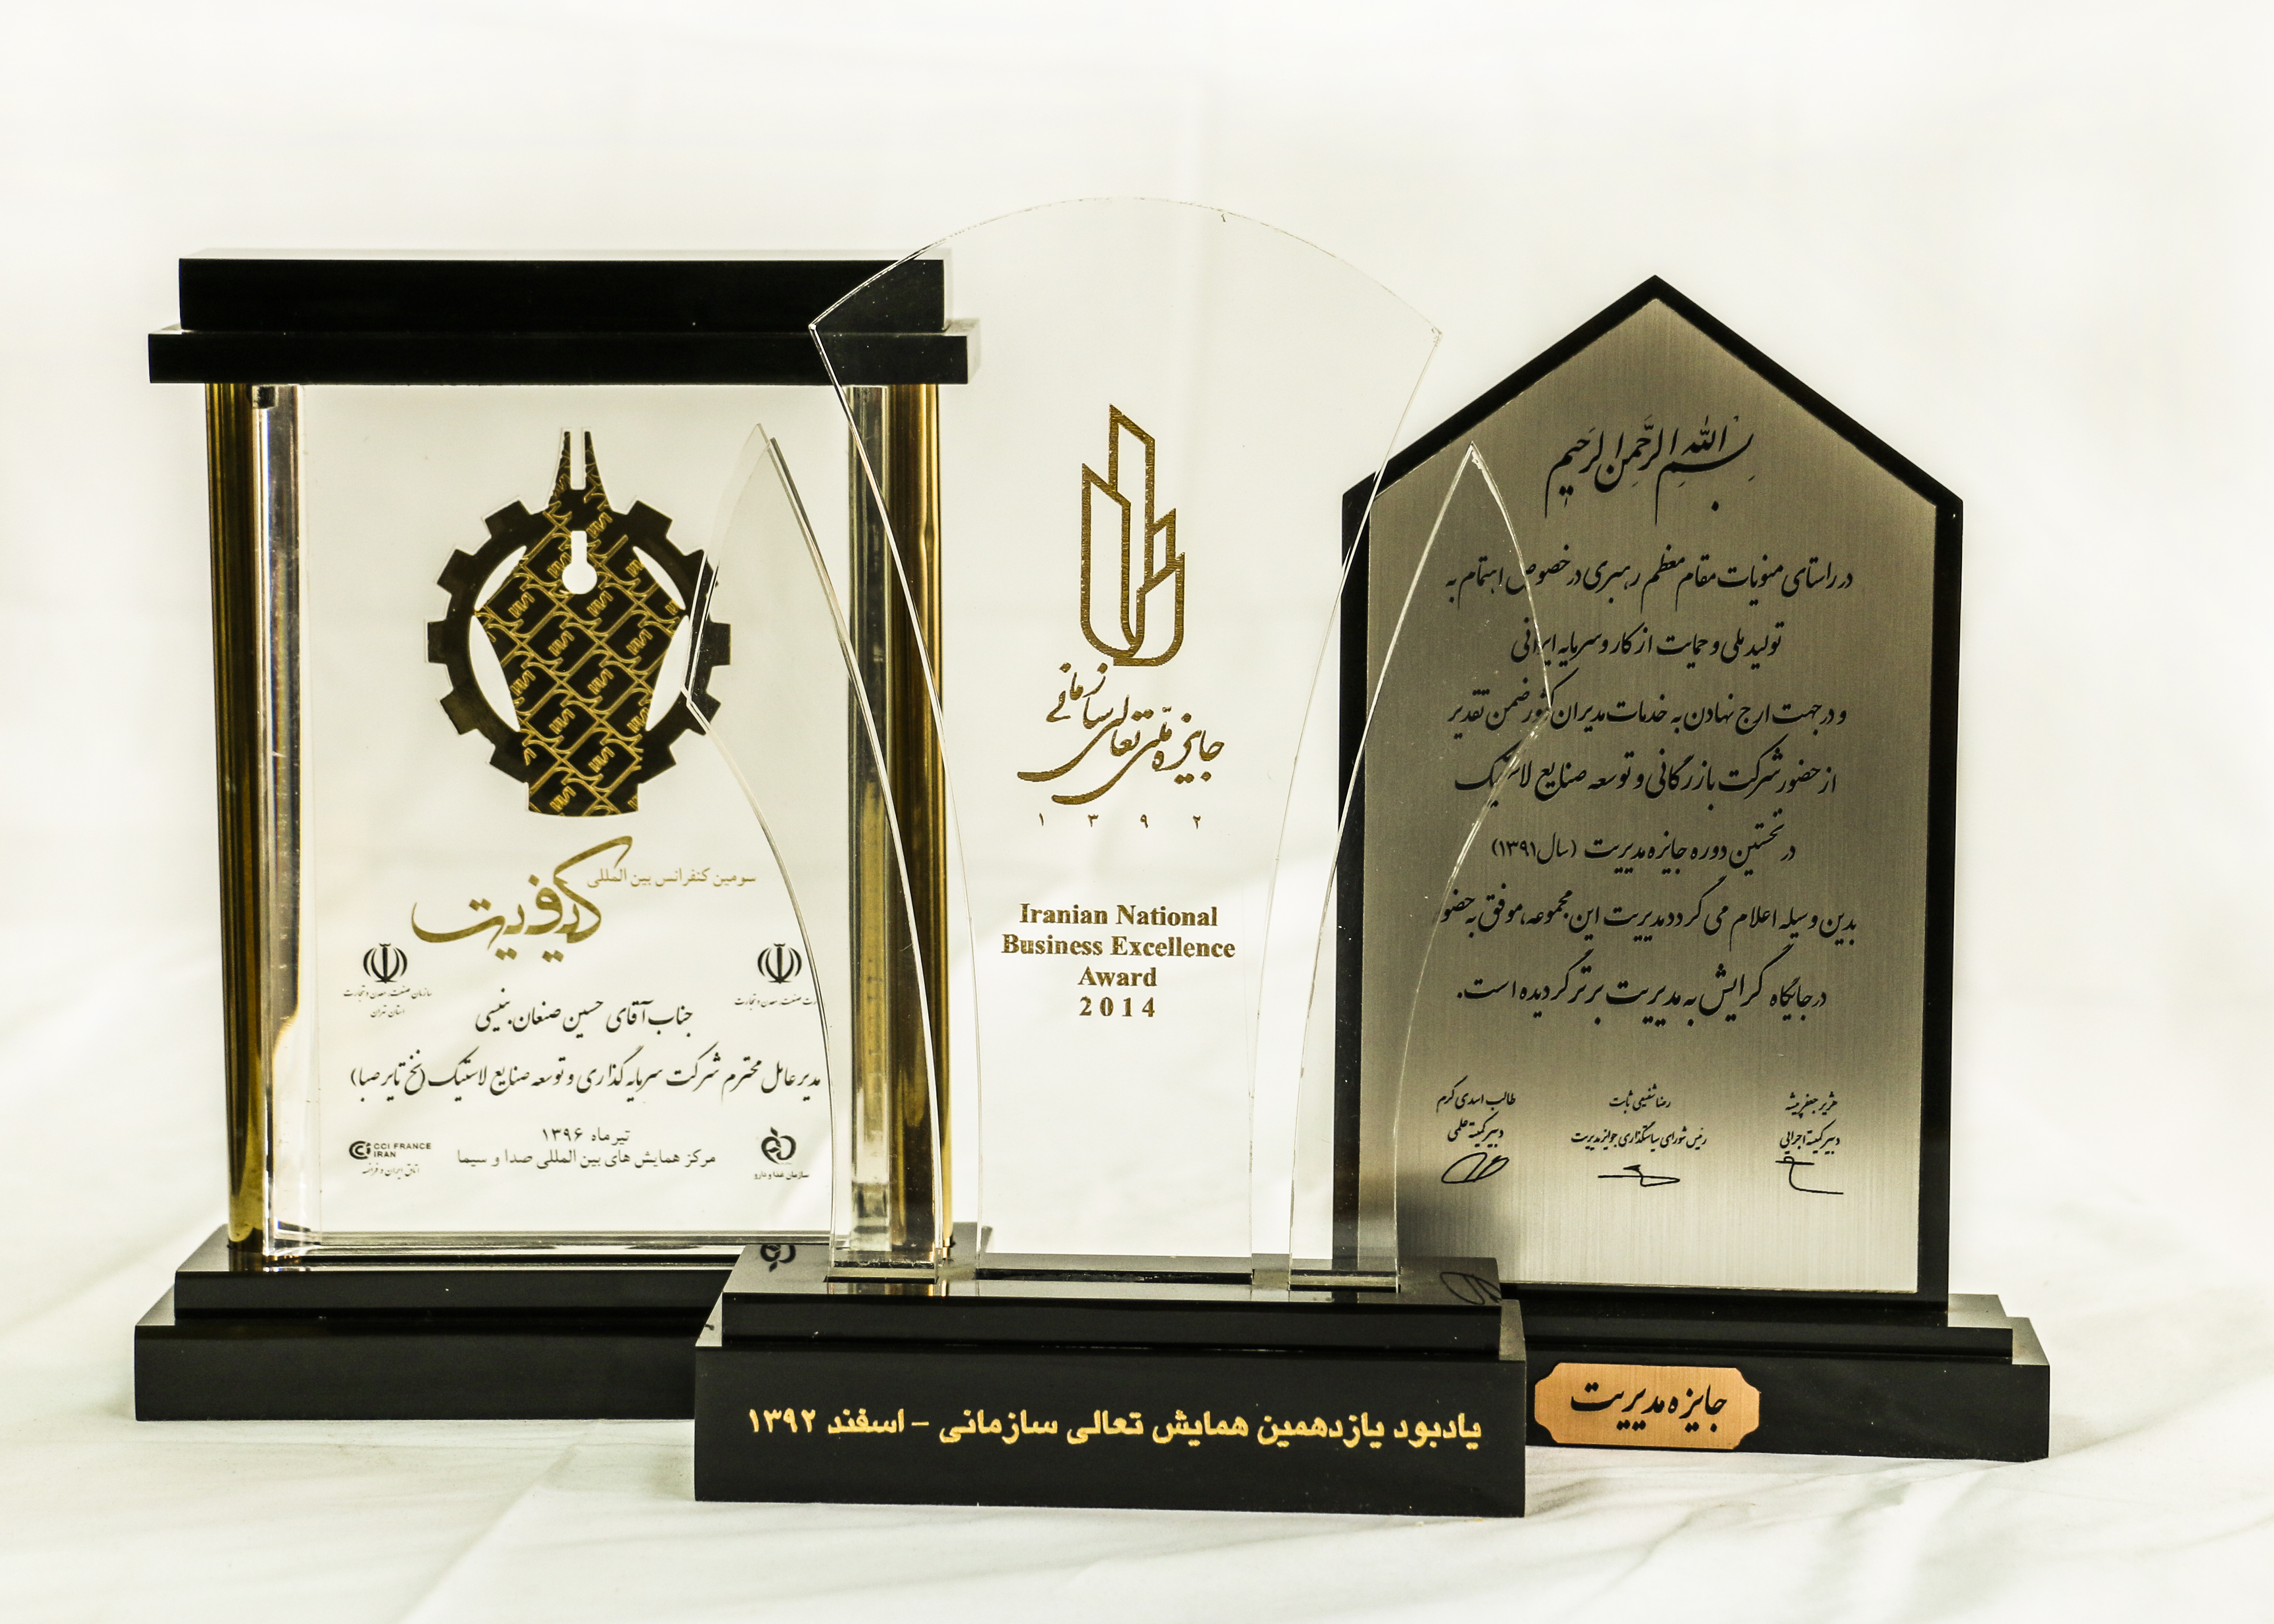 سومین کنفرانس بین المللی
کیفیت
سازمان صنعت، معدن و تجارت
استان تهران
صنعت، معدن و تجارت
جناب آقای حسین صنعان بنیسی
مدیر عامل محترم شرکت سرمایه گذاری و توسعه صنایع لاستیک (نخ تایر صبا)
تیر ماه ۱۳۹۶
مرکز همایش های بین المللی صدا و سیما
CCI FRANCE
IRAN
اتاق ایران و فرانسه
سازمان غذا و دارو
جایزه ملی تعالی سازمانی
۱۳۹۲
Iranian National
Business Excellence
Award
2014
یادبود یازدهمین همایش تعالی سازمانی - اسفند ۱۳۹۲
بسم الله الرحمن الرحیم
در راستای منویات مقام معظم رهبری در خصوص اهتمام به
تولید ملی و حمایت از کار و سرمایه ایرانی
و در جهت ارج نهادن به خدمات مدیران کشور ضمن تقدیر
از حضور شرکت بازرگانی و توسعه صنایع لاستیک
در نخستین دوره جایزه مدیریت (سال ۱۳۹۱)
بدین وسیله اعلام می گردد مدیریت این مجموعه، موفق به حضور
در جایگاه گرایش به مدیریت برتر گردیده است.
هژبر جعفرپیشه
دبیر کمیته اجرایی
رضا شفیعی ثابت
رئیس شورای سیاستگذاری جوایز مدیریت
طالب اسدی کرم
دبیر کمیته علمی
جایزه مدیریت